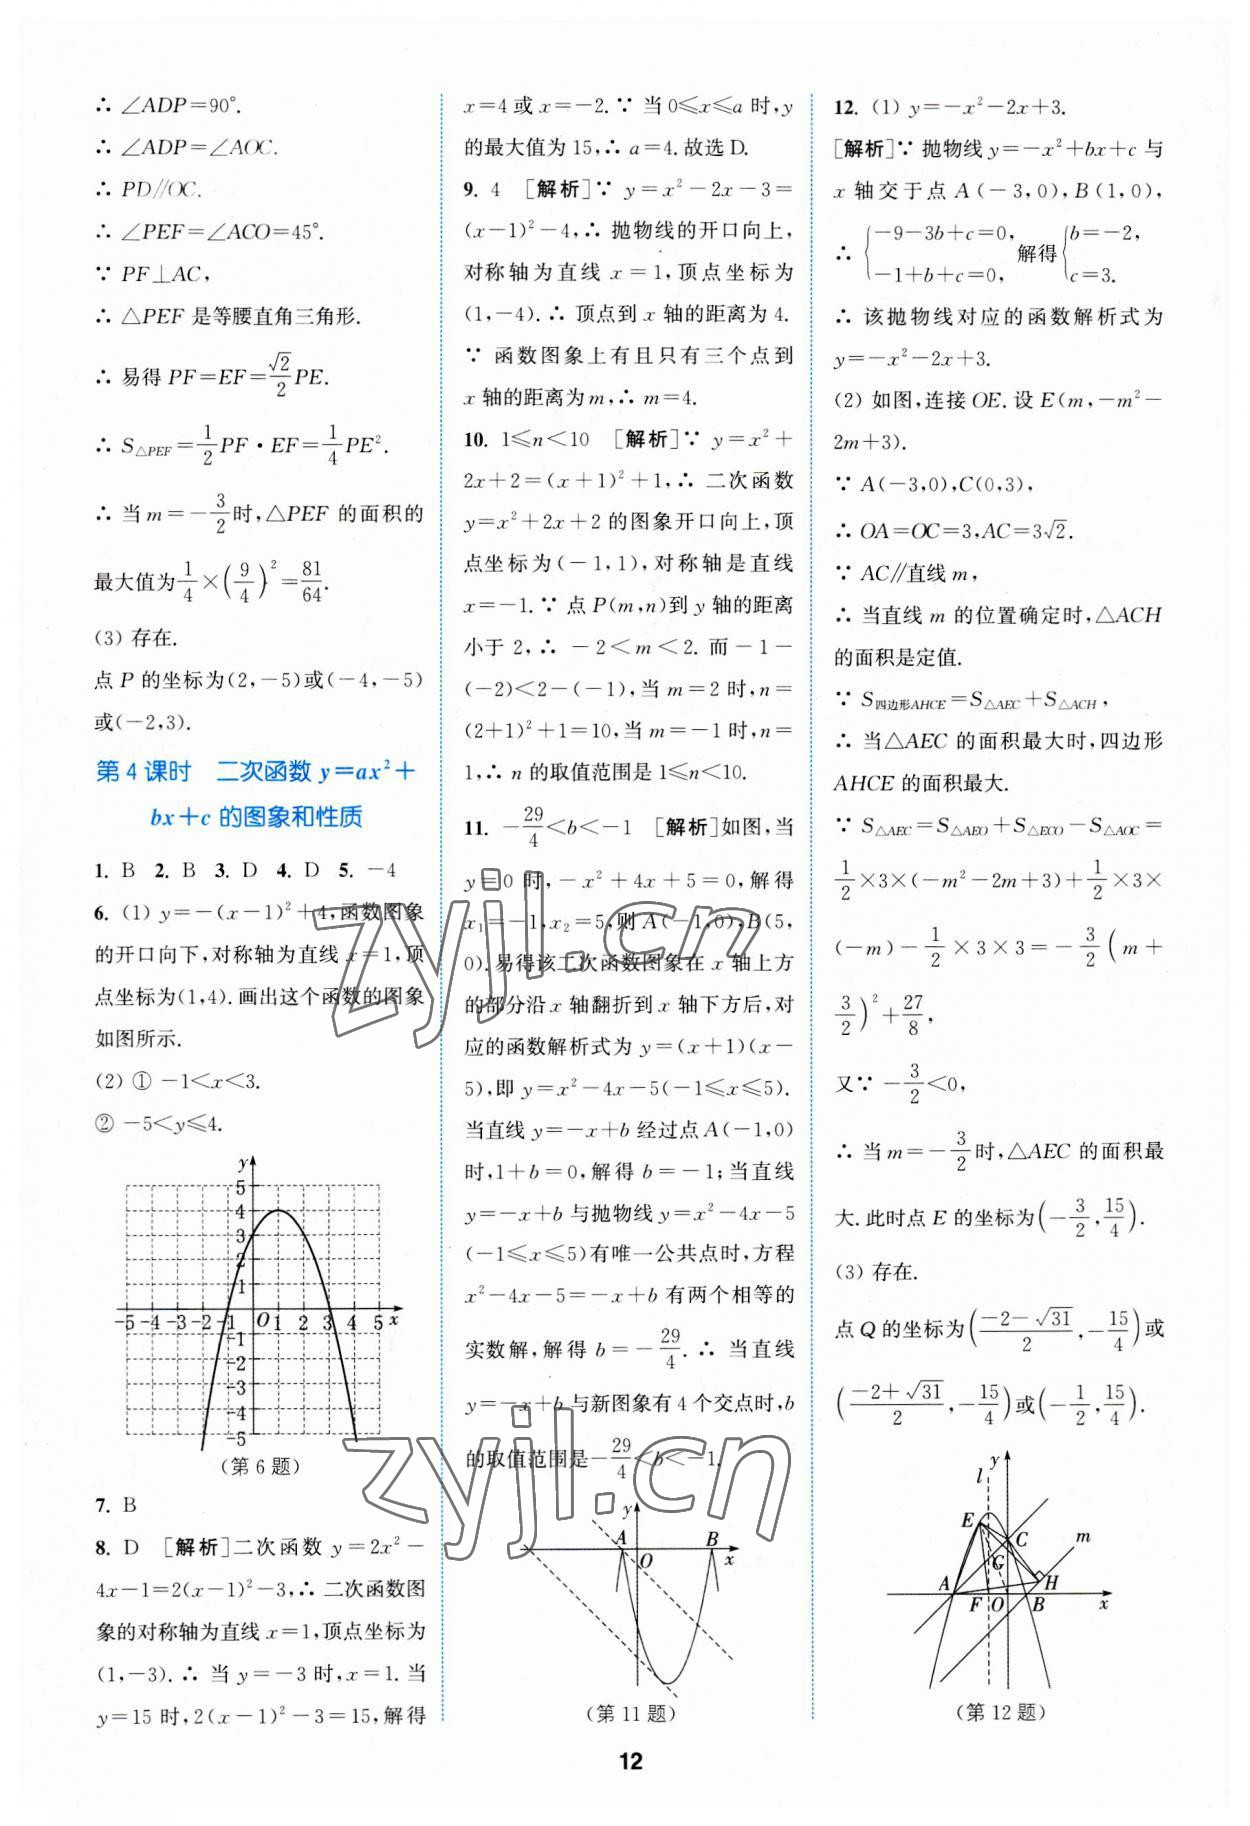 ∴ ∠ADP=90°.
∴ ∠ADP=∠AOC.
∴ PD//OC.
∴ ∠PEF=∠ACO=45°.
∵ PF⊥AC,
∴ △PEF 是等腰直角三角形.
∴ 易得 PF=EF=√2/2 PE.
∴ S△PEF=1/2 PF·EF=1/4 PE².
∴ 当 m=-3/2 时,△PEF 的面积的
最大值为 1/4×(9/4)²=81/64.
(3) 存在.
点 P 的坐标为(2,-5)或(-4,-5)
或(-2,3).
第 4 课时 二次函数 y=ax²+
bx+c 的图象和性质
1. B 2. B 3. D 4. D 5. -4
6. (1) y=-(x-1)²+4,函数图象
的开口向下,对称轴为直线 x=1,顶
点坐标为(1,4). 画出这个函数的图象
如图所示.
(2) ① -1<x<3.
② -5<y≤4.
y
5
4
3
2
1
-5 -4 -3 -2 -1 O 1 2 3 4 5 x
-1
-2
-3
-4
-5
(第 6 题)
7. B
8. D [解析]二次函数 y=2x²-
4x-1=2(x-1)²-3,∴ 二次函数图
象的对称轴为直线 x=1,顶点坐标为
(1,-3). ∴ 当 y=-3 时,x=1. 当
y=15 时,2(x-1)²-3=15,解得
x=4 或 x=-2. ∵ 当 0≤x≤a 时,y
的最大值为 15,∴ a=4. 故选 D.
9. 4 [解析]∵ y=x²-2x-3=
(x-1)²-4,∴ 抛物线的开口向上,
对称轴为直线 x=1,顶点坐标为
(1,-4). ∴ 顶点到 x 轴的距离为 4.
∵ 函数图象上有且只有三个点到
x 轴的距离为 m,∴ m=4.
10. 1≤n<10 [解析]∵ y=x²+
2x+2=(x+1)²+1,∴ 二次函数
y=x²+2x+2 的图象开口向上,顶
点坐标为(-1,1),对称轴是直线
x=-1. ∵ 点 P(m,n)到 y 轴的距离
小于 2,∴ -2<m<2. 而-1-
(-2)<2-(-1),当 m=2 时,n=
(2+1)²+1=10,当 m=-1 时,n=
1,∴ n 的取值范围是 1≤n<10.
11. -29/4<b<-1 [解析]如图,当
y=0 时,-x²+4x+5=0,解得
x₁=-1,x₂=5,则 A(-1,0),B(5,
0). 易得该二次函数图象在 x 轴上方
的部分沿 x 轴翻折到 x 轴下方后,对
应的函数解析式为 y=(x+1)(x-
5),即 y=x²-4x-5(-1≤x≤5).
当直线 y=-x+b 经过点 A(-1,0)
时,1+b=0,解得 b=-1;当直线
y=-x+b 与抛物线 y=x²-4x-5
(-1≤x≤5)有唯一公共点时,方程
x²-4x-5=-x+b 有两个相等的
实数解,解得 b=-29/4. ∴ 当直线
y=-x+b 与新图象有 4 个交点时,b
的取值范围是-29/4<b<-1.
y
A B
O x
(第 11 题)
12. (1) y=-x²-2x+3.
[解析]∵ 抛物线 y=-x²+bx+c 与
x 轴交于点 A(-3,0),B(1,0),
∴ {-9-3b+c=0, -1+b+c=0, 解得 {b=-2, c=3.
∴ 该抛物线对应的函数解析式为
y=-x²-2x+3.
(2) 如图,连接 OE. 设 E(m,-m²-
2m+3).
∵ A(-3,0),C(0,3),
∴ OA=OC=3,AC=3√2.
∵ AC//直线 m,
∴ 当直线 m 的位置确定时,△ACH
的面积是定值.
∵ S四边形AHCE=S△AEC+S△ACH,
∴ 当△AEC 的面积最大时,四边形
AHCE 的面积最大.
∵ S△AEC=S△AEO+S△ECO-S△AOC=
1/2×3×(-m²-2m+3)+1/2×3×
(-m)-1/2×3×3=-3/2(m+
3/2)²+27/8,
又∵ -3/2<0,
∴ 当 m=-3/2 时,△AEC 的面积最
大. 此时点 E 的坐标为(-3/2,15/4).
(3) 存在.
点 Q 的坐标为((-2-√31)/2,-15/4)或
((-2+√31)/2,-15/4)或(-1/2,15/4).
l y
E C m
G
A H
F O B x
(第 12 题)
zyjl.cn
zyjl.cn
12